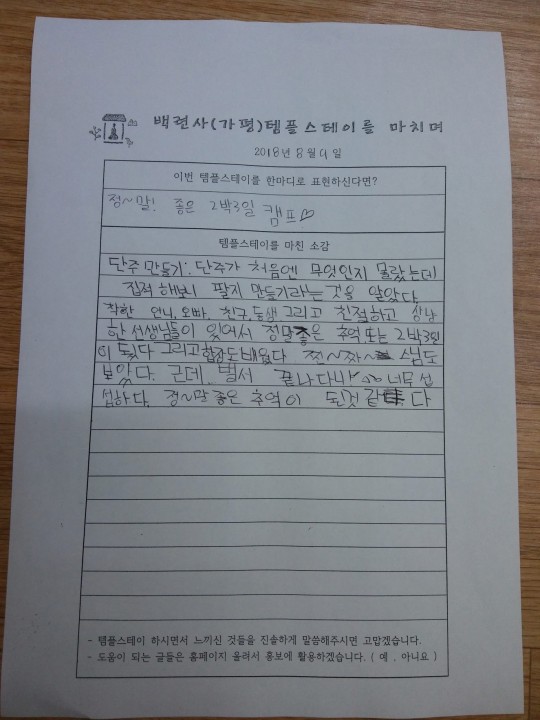 백련사(가평)템플스테이를 마치며
2018년 8월 4일
이번 템플스테이를 한마디로 표현하신다면?
정~말! 좋은 2박3일 캠프♡
템플스테이를 마친 소감
단주 만들기: 단주가 처음엔 무엇인지 몰랐는데
직접 해보니 팔찌 만들기라는 것을 알았다.
착한 언니, 오빠, 친구, 동생 그리고 친절하고 상냥
한 선생님들이 있어서 정말 좋은 추억 또는 2박3일
이 됬다 그리고 합장도 배웠다 찐~짜~ 스님도
보았다. 근데, 벌서 끝나다니 ㅠㅠ 너무 섭
섭하다. 정~말 좋은 추억이 된것 같다
- 템플스테이 하시면서 느끼신 것들을 진솔하게 말씀해주시면 고맙겠습니다.
- 도움이 되는 글들은 홈페이지 올려서 홍보에 활용하겠습니다. ( 예 , 아니요 )